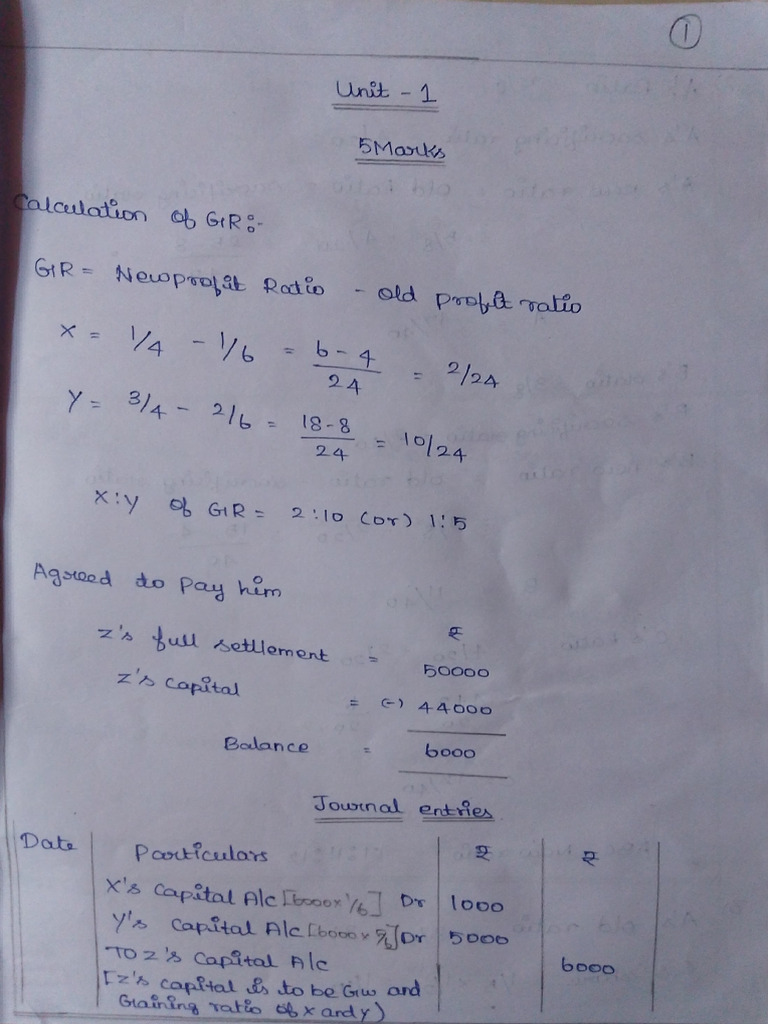 1
Unit - 1
5 Marks
Calculation of GR:-
GR = New profit Ratio - old profit ratio
X = 1/4 - 1/6 = 6-4/24 = 2/24
Y = 3/4 - 2/6 = 18-8/24 = 10/24
X:Y of GR = 2:10 (or) 1:5
Agreed to pay him
₹
Z's full settlement = 50000
Z's capital = (-) 44000
Balance = 6000
Journal entries
Date Particulars ₹ ₹
X's capital A/c [6000x1/6] Dr 1000
Y's capital A/c [6000x5/6] Dr 5000
TO Z's capital A/c 6000
[Z's capital is to be Gw and
Graining ratio of X and Y)